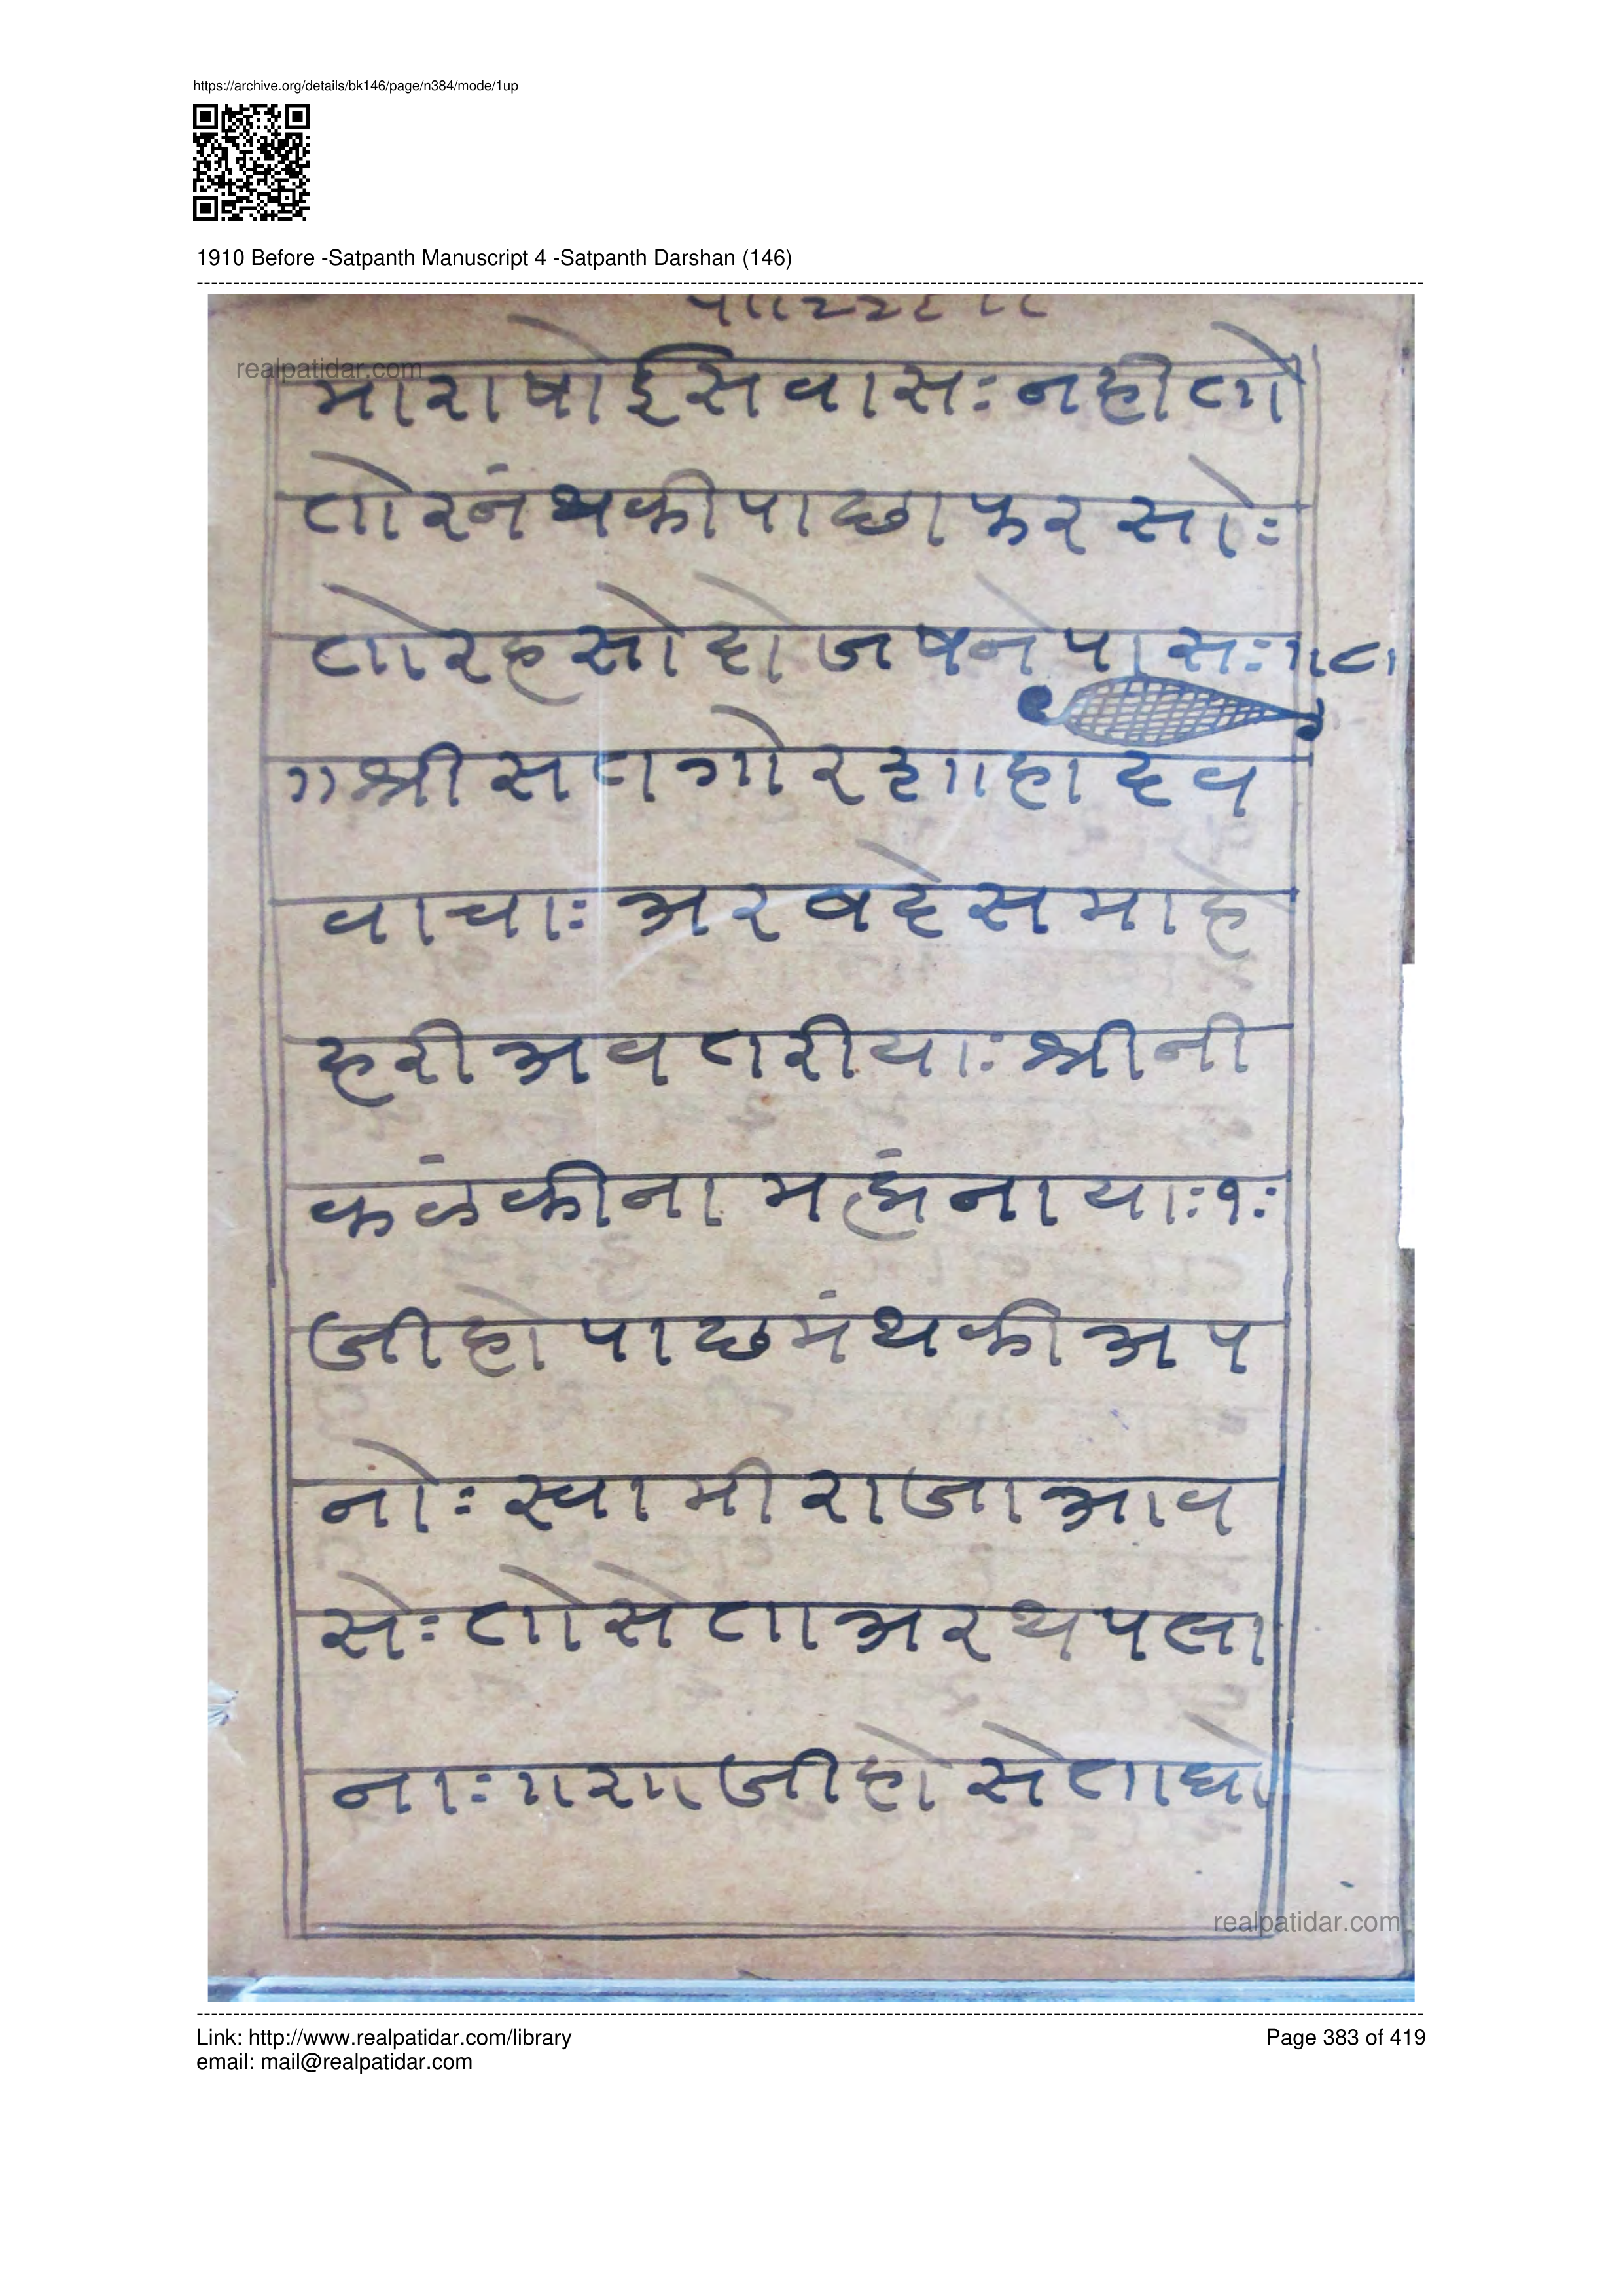 https://archive.org/details/bk146/page/n384/mode/1up
1910 Before -Satpanth Manuscript 4 -Satpanth Darshan (146)
realpatidar.com
माराषोईसवासः नहीतो
तोरनंथकीपाछाफरसोः
तोरहसोदोजषनेपासः॥८॥
॥श्रीसतगोरशाहादेव
वाचाः अरबदेसमाहे
हरीअवतरीयाः श्रीनी
कळंकीनाम
नायाः१ः
जीहोपाछमंथकीअप
नोः स्वामीराजाआव
सेः तोसेताअरथपला
नाः॥२॥जीहोसेताघो
realpatidar.com
Link: http://www.realpatidar.com/library
email: mail@realpatidar.com
Page 383 of 419